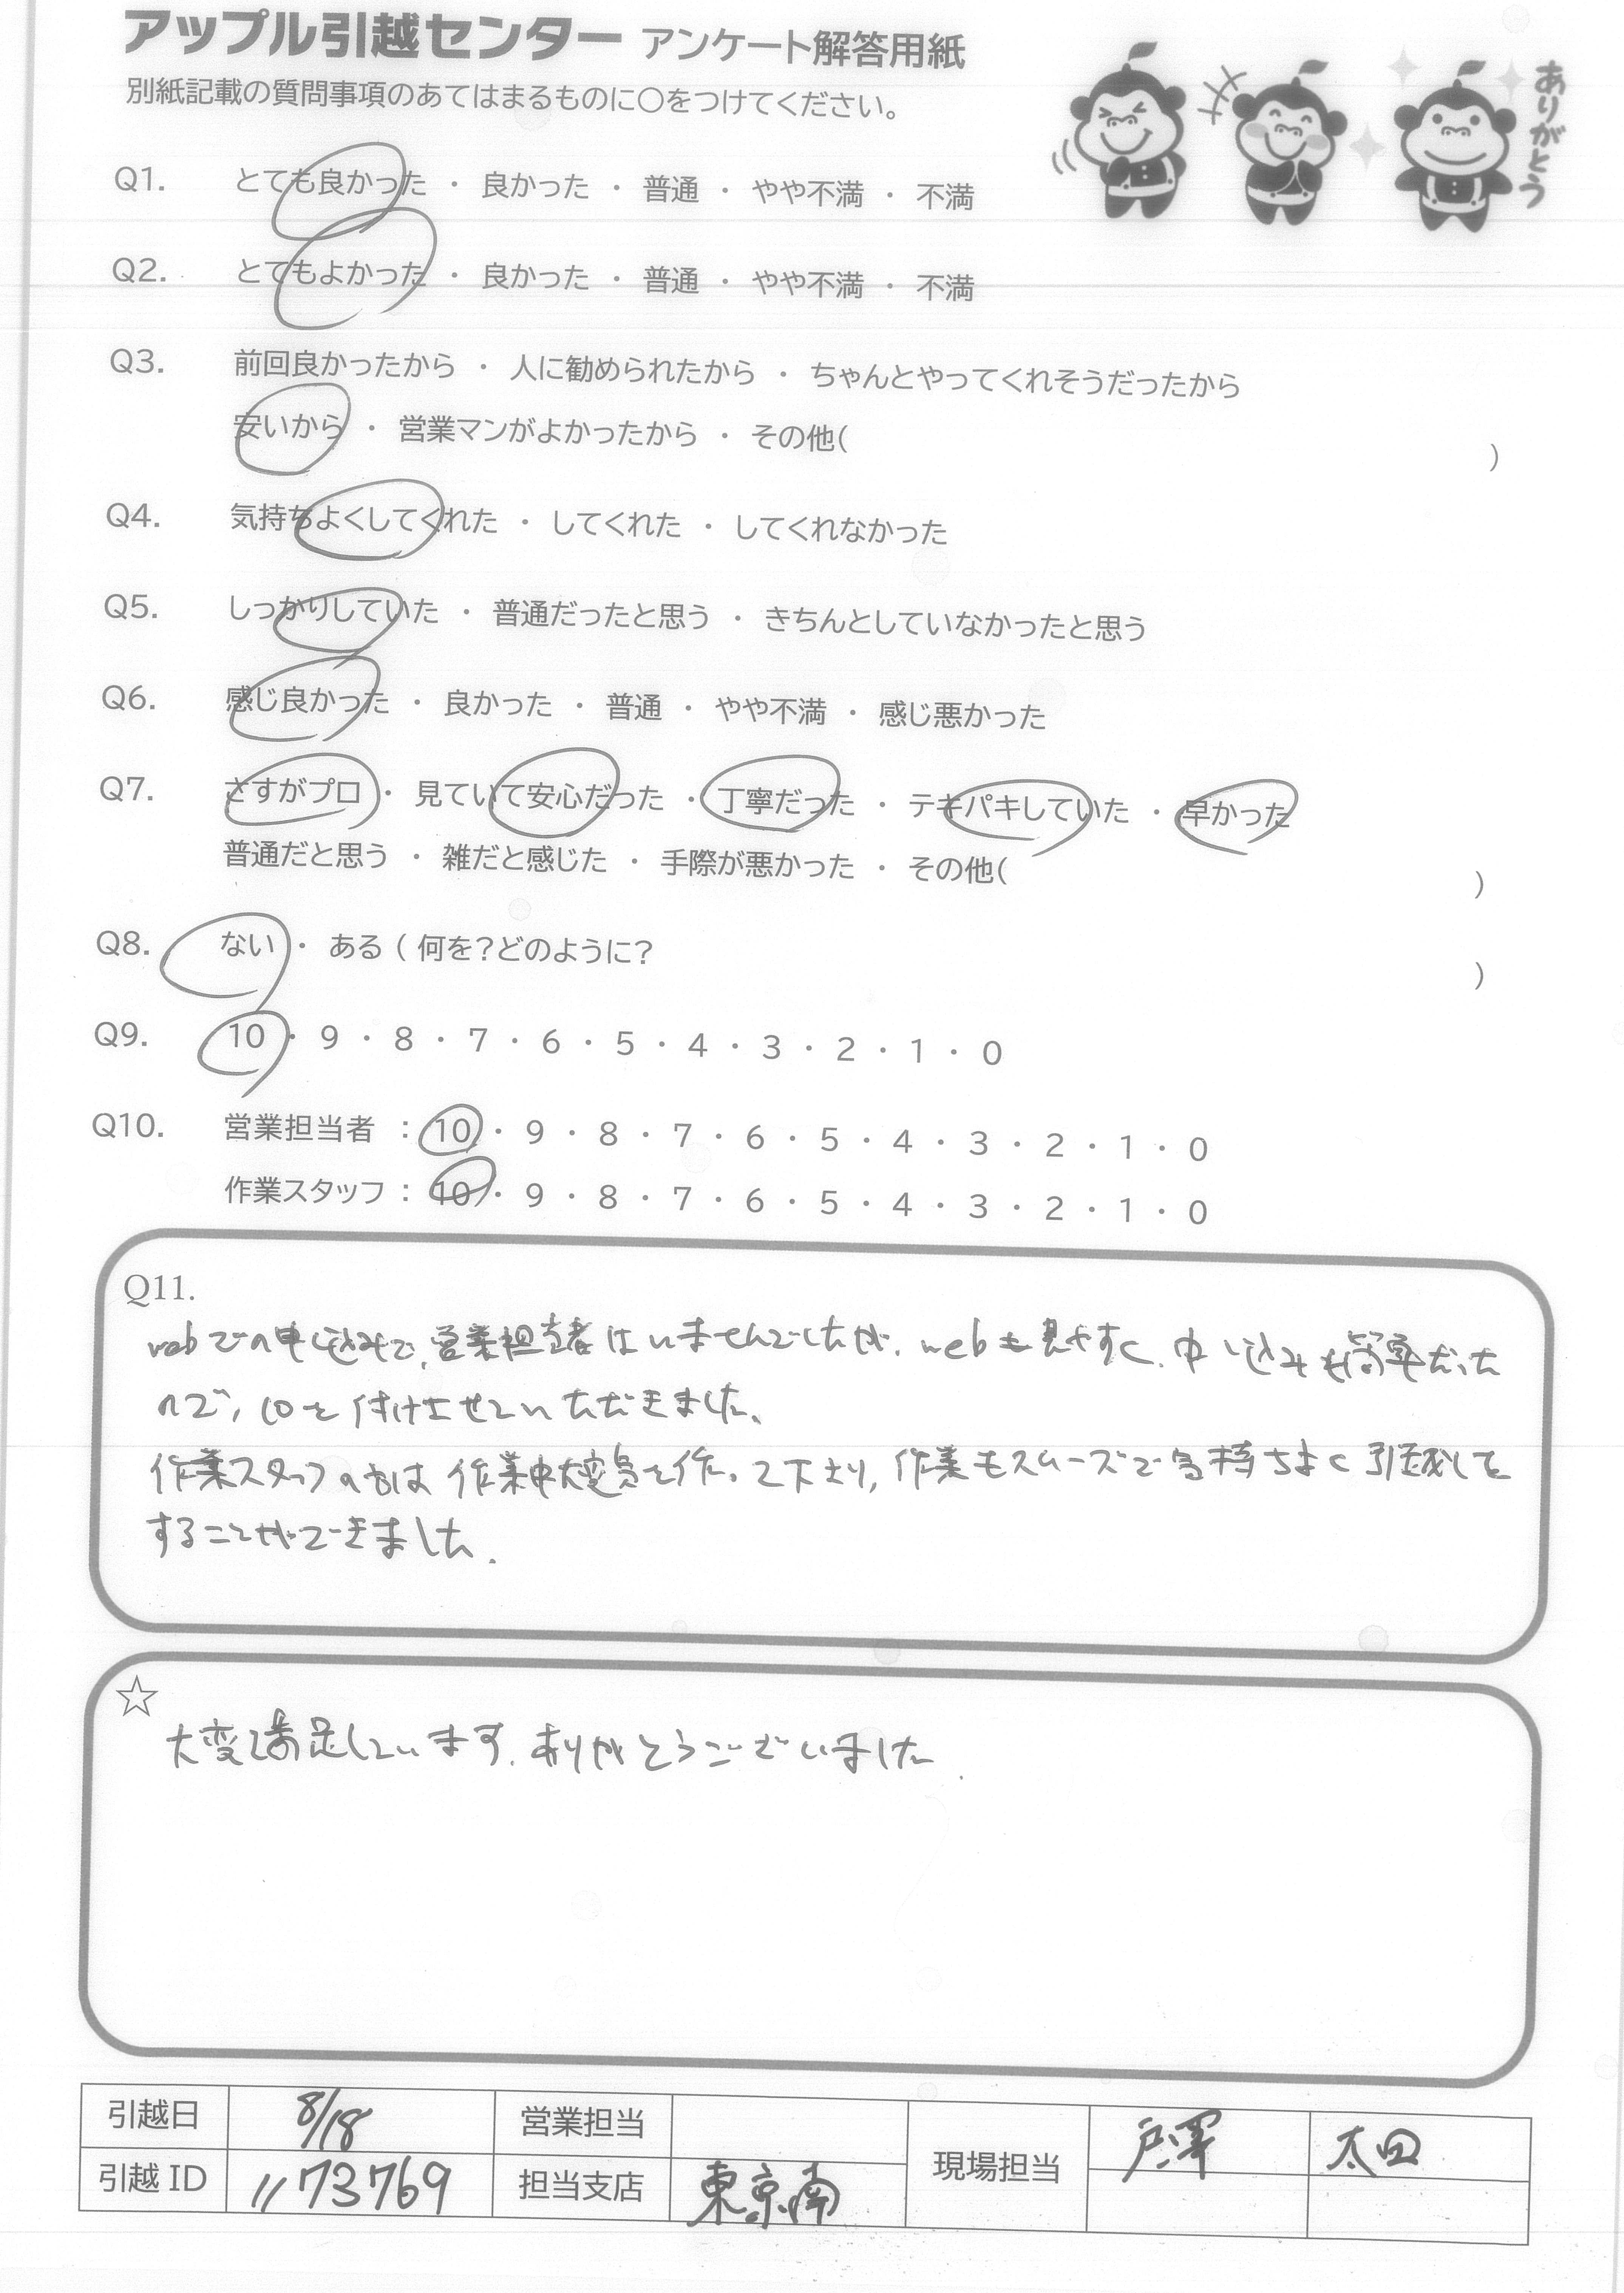 アップル引越センター アンケート解答用紙
別紙記載の質問事項のあてはまるものに○をつけてください。
ありがとう
Q1. とても良かった ・ 良かった ・ 普通 ・ やや不満 ・ 不満
Q2. とてもよかった ・ 良かった ・ 普通 ・ やや不満 ・ 不満
Q3. 前回良かったから ・ 人に勧められたから ・ ちゃんとやってくれそうだったから
安いから ・ 営業マンがよかったから ・ その他( )
Q4. 気持ちよくしてくれた ・ してくれた ・ してくれなかった
Q5. しっかりしていた ・ 普通だったと思う ・ きちんとしていなかったと思う
Q6. 感じ良かった ・ 良かった ・ 普通 ・ やや不満 ・ 感じ悪かった
Q7. さすがプロ ・ 見ていて安心だった ・ 丁寧だった ・ テキパキしていた ・ 早かった
普通だと思う ・ 雑だと感じた ・ 手際が悪かった ・ その他( )
Q8. ない ・ ある ( 何を?どのように? )
Q9. 10 ・ 9 ・ 8 ・ 7 ・ 6 ・ 5 ・ 4 ・ 3 ・ 2 ・ 1 ・ 0
Q10. 営業担当者 : 10 ・ 9 ・ 8 ・ 7 ・ 6 ・ 5 ・ 4 ・ 3 ・ 2 ・ 1 ・ 0
作業スタッフ : 10 ・ 9 ・ 8 ・ 7 ・ 6 ・ 5 ・ 4 ・ 3 ・ 2 ・ 1 ・ 0
Q11.
webでの申し込みで、営業担当者はいませんでしたが、webも見やすく、申し込みも簡単だった
ので、10を付けさせていただきました。
作業スタッフの方は作業中大変気を作って下さり、作業もスムーズで気持ちよく引越しを
することができました.
☆
大変満足しています. ありがとうございました.
引越日 8/18 営業担当 現場担当 戸澤 太田
引越 ID 1173769 担当支店 東京南